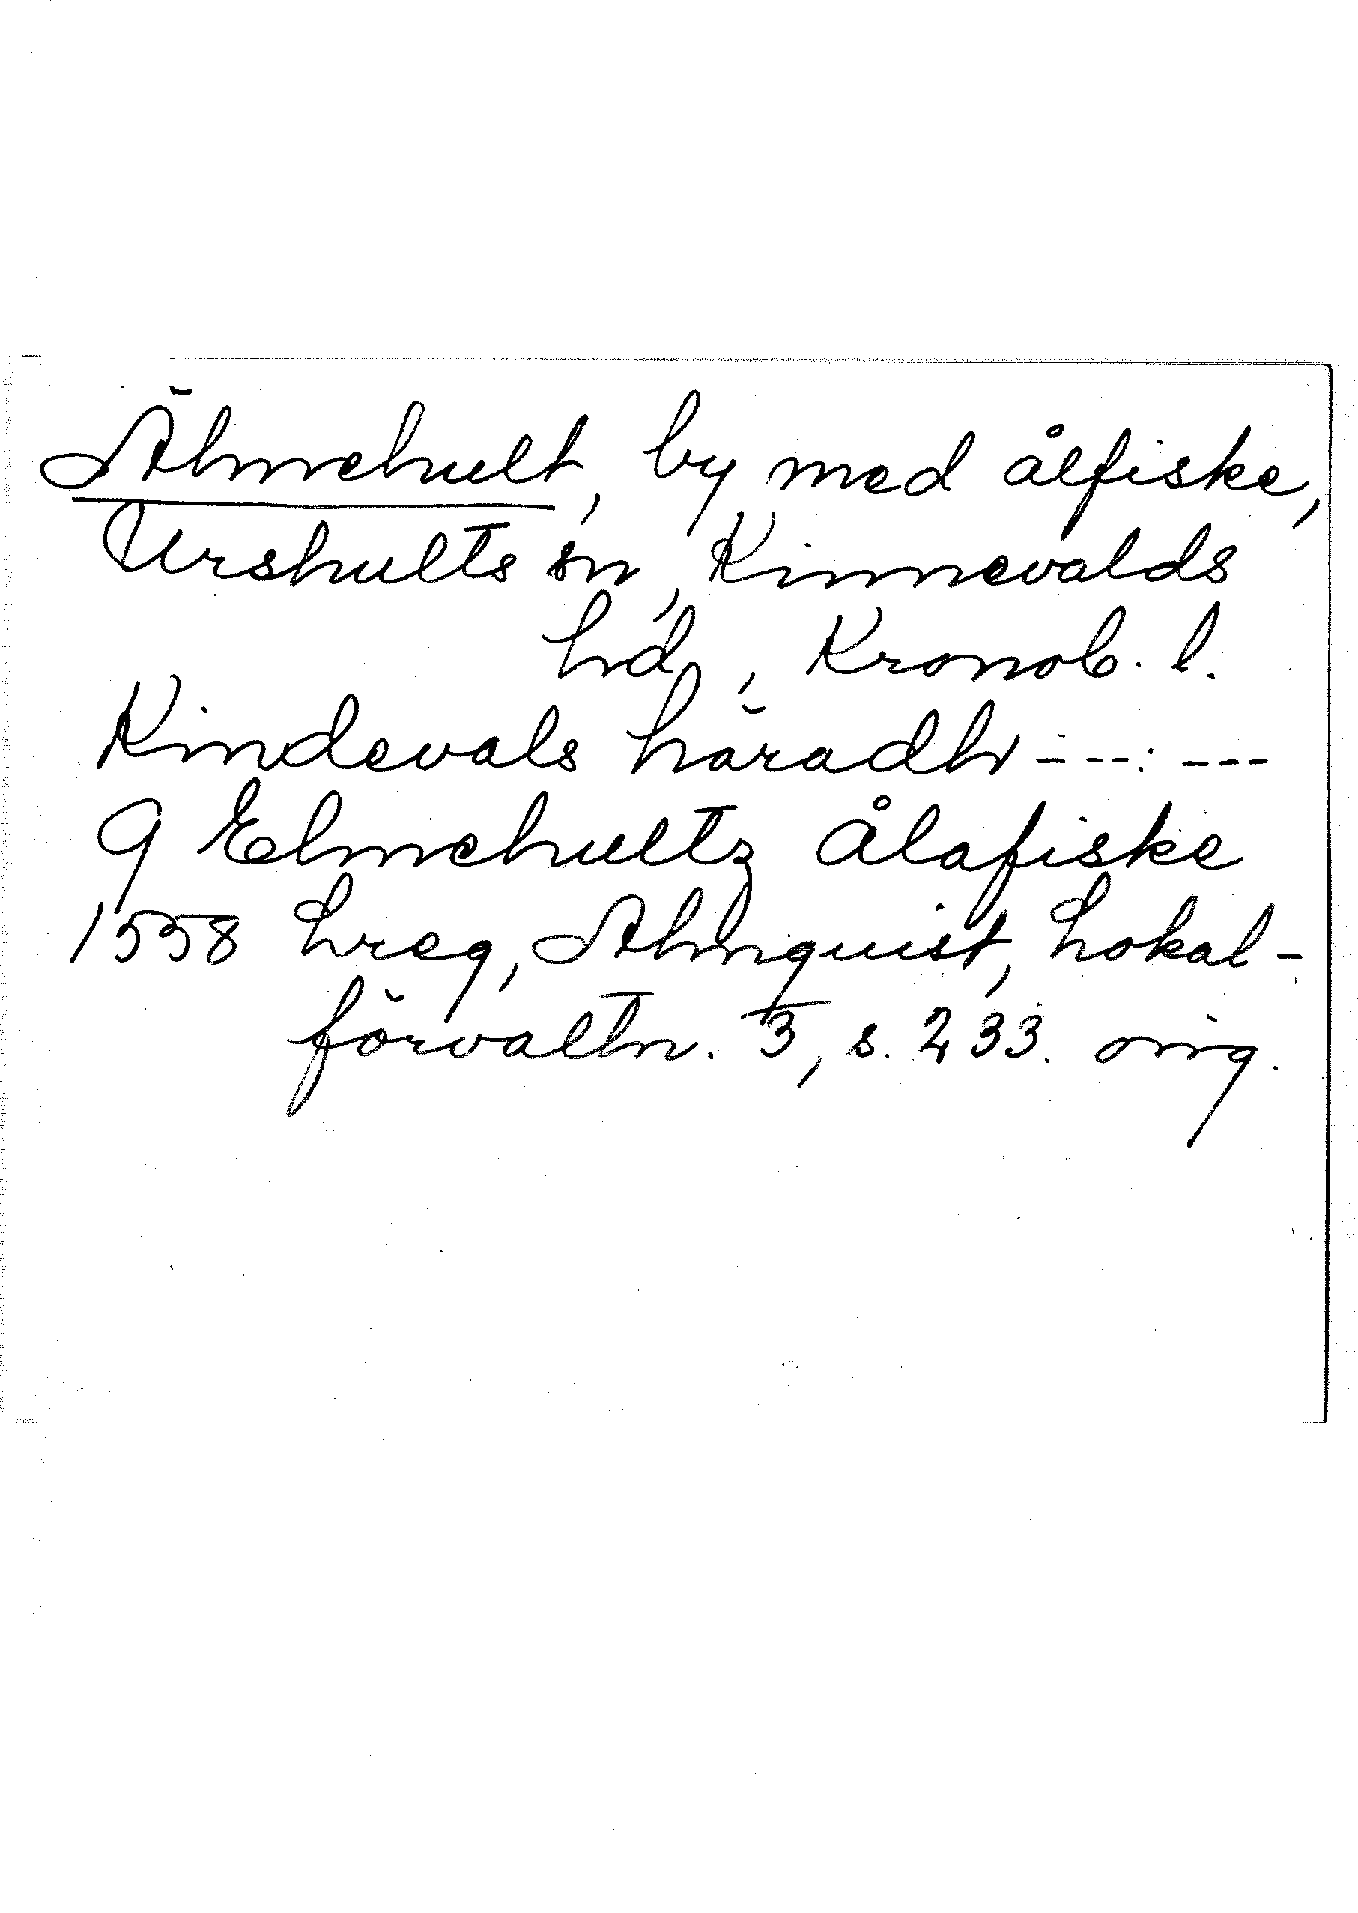 Älmehult, by med ålfiske,
Urshults sn, Kinnevalds
hd, Kronob. l.
Kindevals häradh ---:---
9 Elmehultz Ålafiske
1558 hreg, Almquist, Lokal-
förvaltn. 3, s. 233. orig.